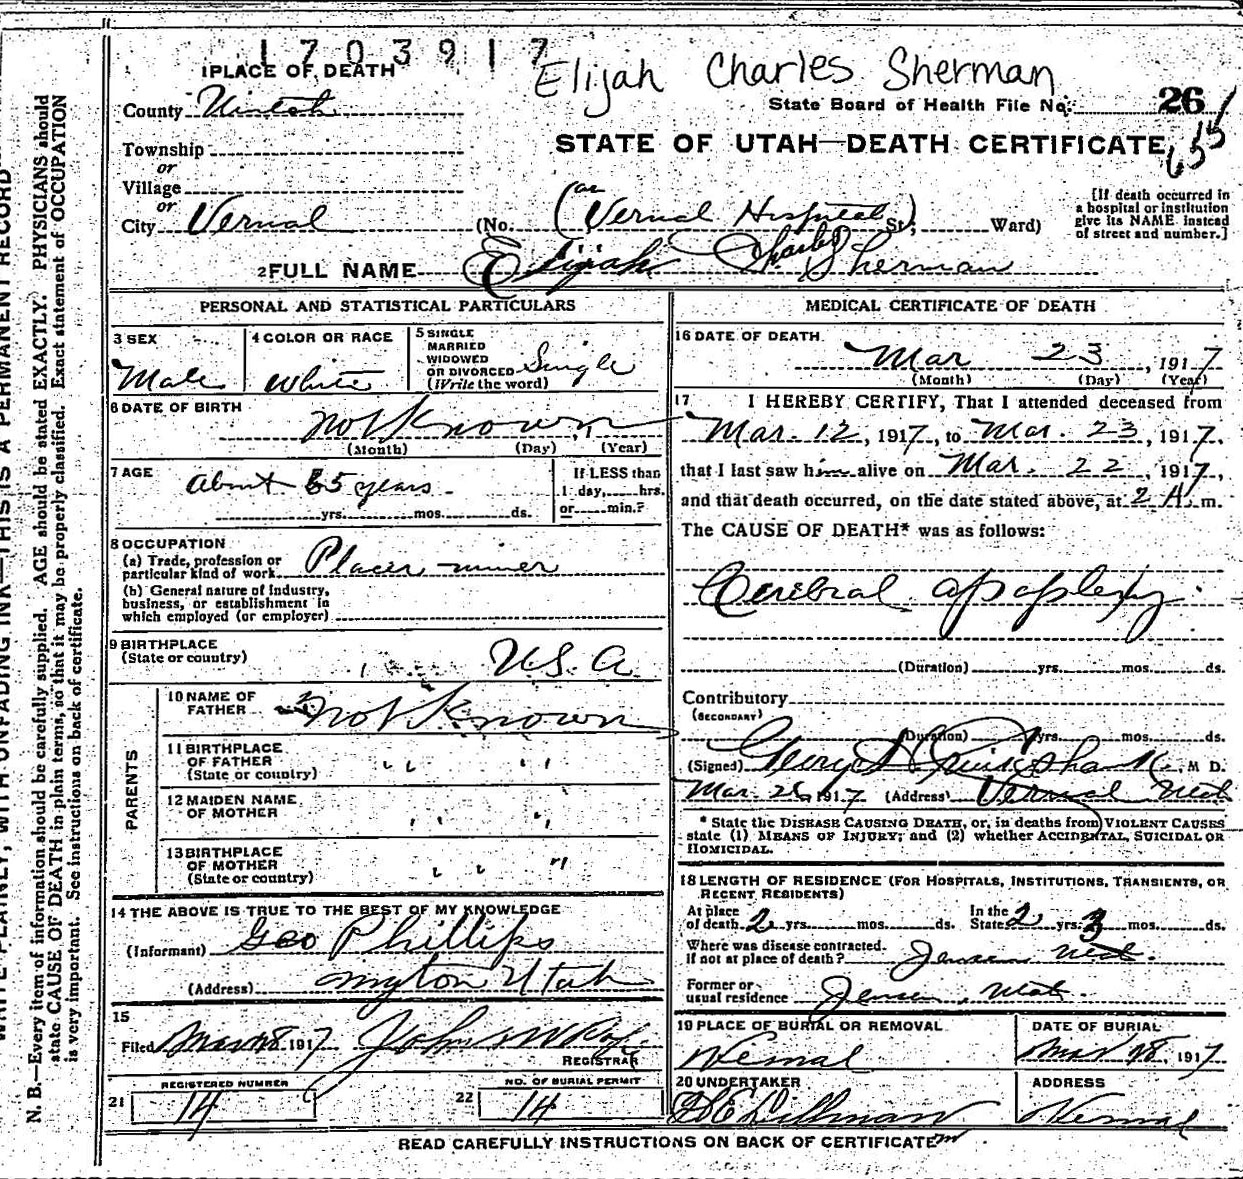 1703917
Elijah Charles Sherman
1 PLACE OF DEATH
State Board of Health File No. 26
County Uintah
STATE OF UTAH—DEATH CERTIFICATE
Township
or
Village
or
City Vernal (No. (Vernal Hospital) St; Ward)
[If death occurred in
a hospital or institution
give its NAME instead
of street and number.]
2 FULL NAME Elijah Charles Sherman
PERSONAL AND STATISTICAL PARTICULARS
3 SEX
Male
4 COLOR OR RACE
White
5 SINGLE
MARRIED
WIDOWED
OR DIVORCED
(Write the word)
Single
6 DATE OF BIRTH
not known
(Month) (Day) (Year)
7 AGE
about 65 years
yrs. mos. ds.
If LESS than
1 day, hrs.
or min.?
8 OCCUPATION
(a) Trade, profession or
particular kind of work Placer miner
(b) General nature of industry,
business, or establishment in
which employed (or employer)
9 BIRTHPLACE
(State or country)
U.S.A.
PARENTS
10 NAME OF
FATHER not known
11 BIRTHPLACE
OF FATHER
(State or country) " "
12 MAIDEN NAME
OF MOTHER " "
13 BIRTHPLACE
OF MOTHER
(State or country) " "
14 THE ABOVE IS TRUE TO THE BEST OF MY KNOWLEDGE
(Informant) Geo Phillips
(Address) Myton Utah
15
Filed Mar 28 1917
REGISTRAR
REGISTERED NUMBER
21 14
NO. OF BURIAL PERMIT
22 14
MEDICAL CERTIFICATE OF DEATH
16 DATE OF DEATH
Mar 23, 1917
(Month) (Day) (Year)
17 I HEREBY CERTIFY, That I attended deceased from
Mar. 12, 1917, to Mar. 23, 1917,
that I last saw him alive on Mar. 22, 1917,
and that death occurred, on the date stated above, at 2 A. m.
The CAUSE OF DEATH* was as follows:
Cerebral apoplexy
(Duration) yrs. mos. ds.
Contributory
(SECONDARY)
(Duration) yrs. mos. ds.
(Signed) M D.
Mar. 1917 (Address) Vernal Utah
* State the DISEASE CAUSING DEATH, or, in deaths from VIOLENT CAUSES
state (1) MEANS OF INJURY; and (2) whether ACCIDENTAL, SUICIDAL OR
HOMICIDAL.
18 LENGTH OF RESIDENCE (FOR HOSPITALS, INSTITUTIONS, TRANSIENTS, OR
RECENT RESIDENTS)
At place
of death 2 yrs. mos. ds.
In the
State 2 yrs. 3 mos. ds.
Where was disease contracted.
if not at place of death? Jensen Utah.
Former or
usual residence Jensen, Utah.
19 PLACE OF BURIAL OR REMOVAL
Vernal
DATE OF BURIAL
Mar 28, 1917
20 UNDERTAKER
Dillman
ADDRESS
Vernal
READ CAREFULLY INSTRUCTIONS ON BACK OF CERTIFICATE
WRITE PLAINLY, WITH UNFADING INK—THIS IS A PERMANENT RECORD
N. B.—Every item of information should be carefully supplied. AGE should be stated EXACTLY. PHYSICIANS should
state CAUSE OF DEATH in plain terms, so that it may be properly classified. Exact statement of OCCUPATION
is very important. See instructions on back of certificate.